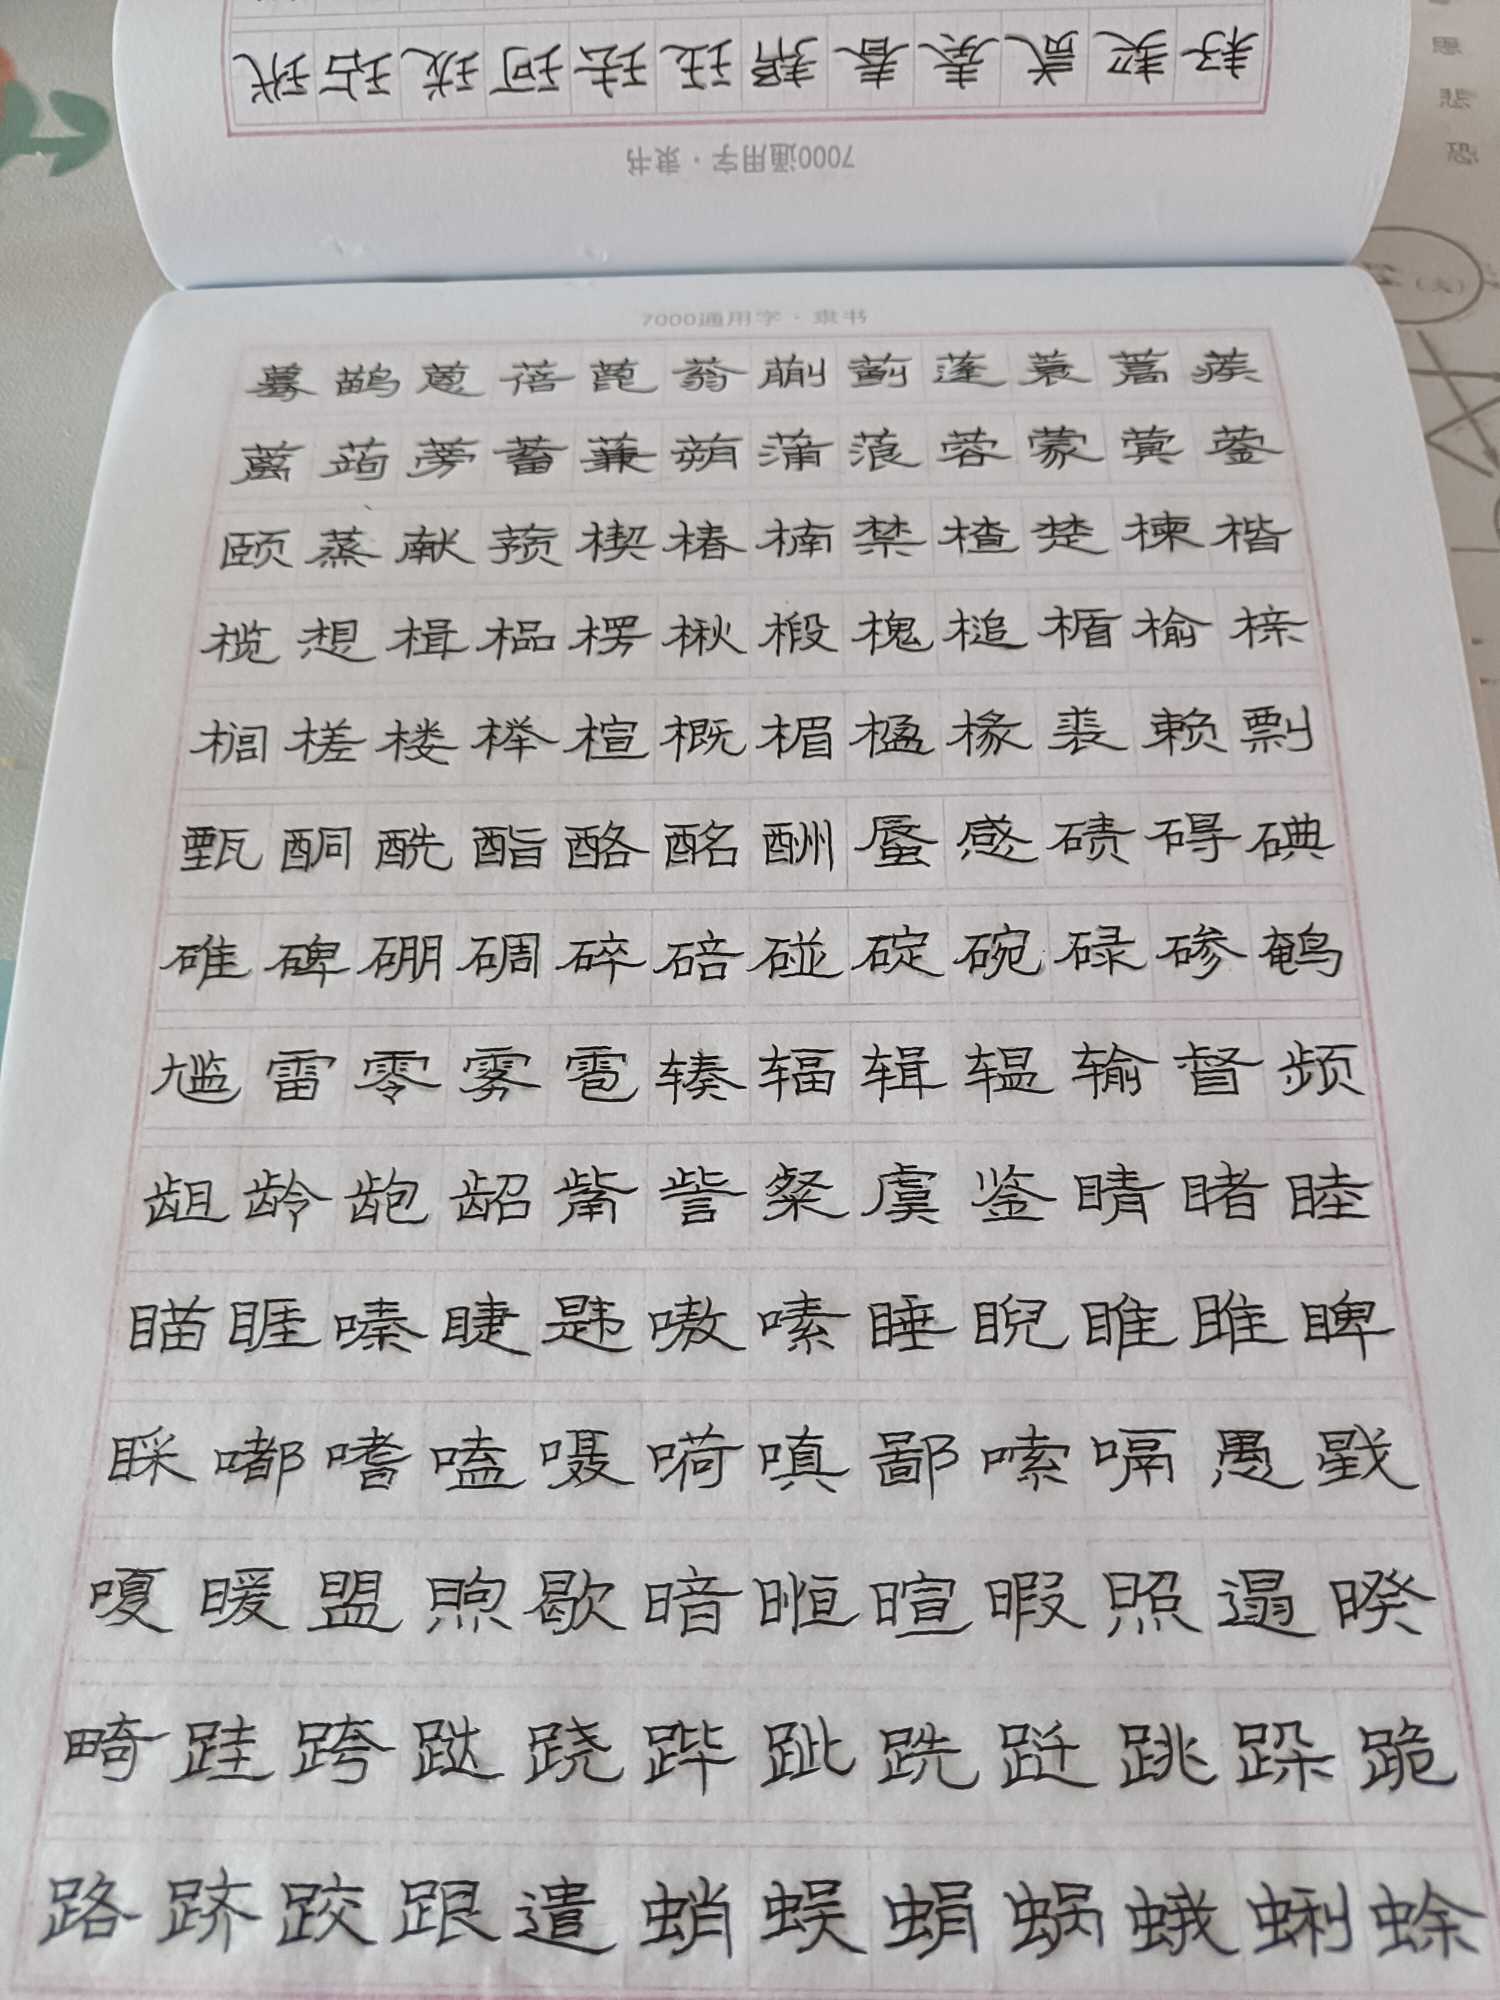 耔契贰奏春帮珏珐珂珑玷玳
7000通用字·隶书
7000通用字·隶书
蓦鹋蒽蓓蓖蓊蒯蓟蓬蓑蒿蒺
蓠蒟蒡蓄蒹蒴蒲蒗蓉蒙蓂蓥
颐蒸献蓣楔椿楠禁楂楚楝楷
榄想楫榀楞楸椴槐槌楯榆榇
榈槎楼榉楦概楣楹椽裘赖剽
甄酮酰酯酪酩酬蜃感碛碍碘
碓碑硼碉碎碚碰碇碗碌碜鹌
尴雷零雾雹辏辐辑辒输督频
龃龄龅龆觜訾粲虞鉴睛睹睦
瞄睚嗪睫韪嗷嗉睡睨睢雎睥
睬嘟嗜嗑嗫嗬嗔鄙嗦嗝愚戥
嗄暖盟煦歇暗暅暄暇照遢暌
畸跬跨跶跷跸跐跣跹跳跺跪
路跻跤跟遣蛸蜈蜎蜗蛾蜊蜍